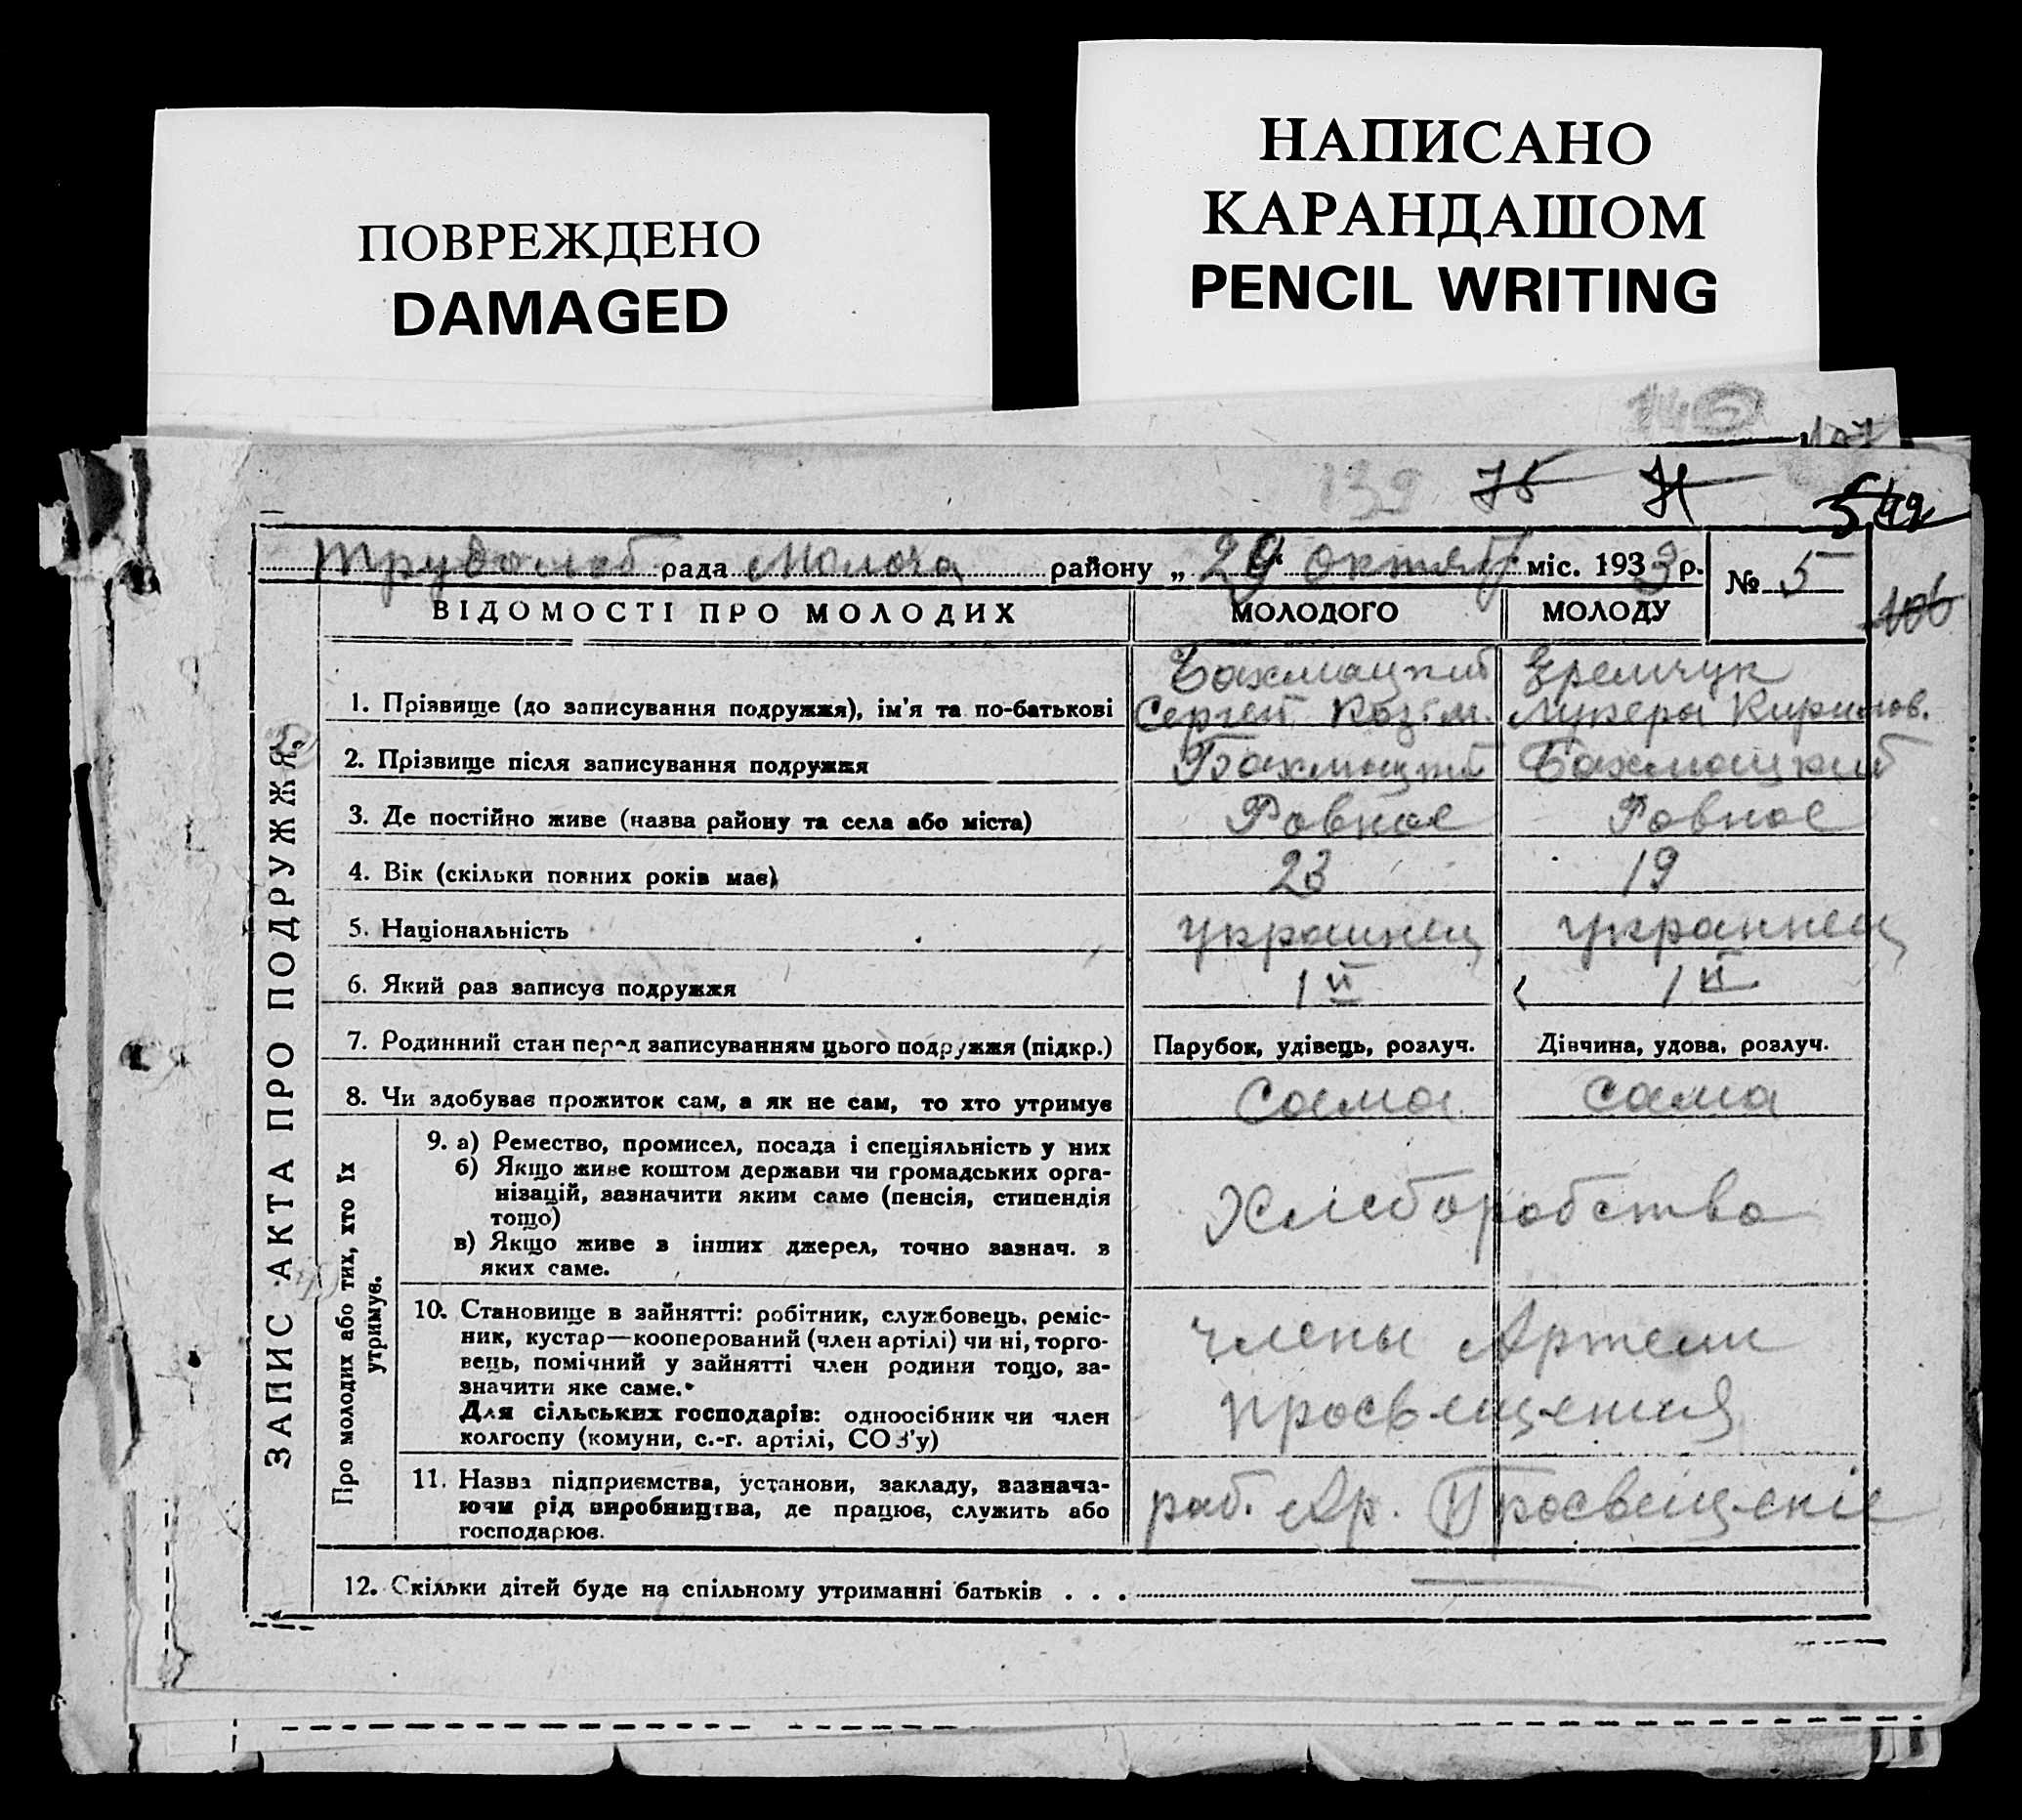 ПОВРЕЖДЕНО
DAMAGED
НАПИСАНО
КАРАНДАШОМ
PENCIL WRITING
139
рада Молоча району „ 29 Октяб міс. 1933 р.
№ 5
106
ВІДОМОСТІ ПРО МОЛОДИХ МОЛОДОГО МОЛОДУ
ЗАПИС АКТА ПРО ПОДРУЖЖЯ
Бахмацкий Еремчук
1. Прізвище (до записування подружжя), ім'я та по-батькові Сергей Козьм. Лукера Кирилов.
2. Прізвище після записування подружжя Бахмацкий Бахмацкий
3. Де постійно живе (назва району та села або міста) Ровное Ровное
4. Вік (скільки повних років має) 23 19
5. Національність украинец украинец
6. Який раз записує подружжя 1й 1й
7. Родинний стан перед записуванням цього подружжя (підкр.) Парубок, удівець, розлуч. Дівчина, удова, розлуч.
8. Чи здобуває прожиток сам, а як не сам, то хто утримує Сама сама
Про молодих або тих, хто їх
утримує.
9. а) Ремество, промисел, посада і спеціяльність у них
б) Якщо живе коштом держави чи громадських орга-
нізацій, зазначити яким саме (пенсія, стипендія
тощо)
в) Якщо живе з інших джерел, точно зазнач. з
яких саме.
Хлеборобство
10. Становище в зайнятті: робітник, службовець, реміс-
ник, кустар—кооперований (член артілі) чи ні, торго-
вець, помічний у зайнятті член родини тощо, за-
значити яке саме.
Для сільських господарів: одноосібник чи член
колгоспу (комуни, с.-г. артілі, СОЗ'у)
члены Артели
просвещения
11. Назва підприємства, установи, закладу, зазнача-
ючи рід виробництва, де працює, служить або
господарює.
раб. Ар. Просвещеніе
12. Скільки дітей буде на спільному утриманні батьків . . .